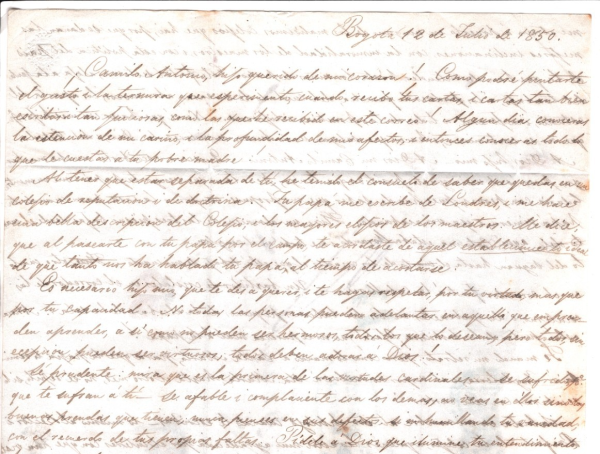 Bogotá 12 de Julio de 1850.
¡Camilo Antonio, hijo querido de mi corazon! Como podré pintarte
el gusto i la ternura que esperimento, cuando recibo tus cartas, i cartas tan bien
escritas i tan juiciosas como las que he recibido en este correo. Algun dia conoceras
la estencion de mi cariño, i la profundidad de mis afectos, i entonces conoceras todo lo
que le cuestas a tu pobre madre!
Al tener que estar separada de ti, he tenido el consuelo de saber que quedas en un
colejio de reputacion i de doctrina. Tu papá me escribe de Londres, i me hace
una bella descripcion del Colejio, i los mayores elojios de los maestros. Me dice,
que al pasearte con tu papá por el campo, te acordaste de aquel establecimiento
de que tanto nos ha hablado tu papá, al tiempo de acostarse.
Es necesario hijo mio, que te des a querer i te hagas respetar, por tu virtud, mas que
por tu capacidad. No todas las personas pueden adelantar en aquello que empren
den aprender, a sí como no pueden ser hermosos, todos los que lo desean, pero todos sin
escepcion pueden ser virtuosos, todos deben adorar a Dios!
Se prudente: mira que es la primera de las virtudes cardinales. Se sufrido para
que te sufran a tí. Se afable i complaciente con los demas,
buenas prendas que tienen, nunca pienses en sus defectos, i
con el recuerdo de tus propias faltas. Pidele a Dios que ilumine tu entendimiento,